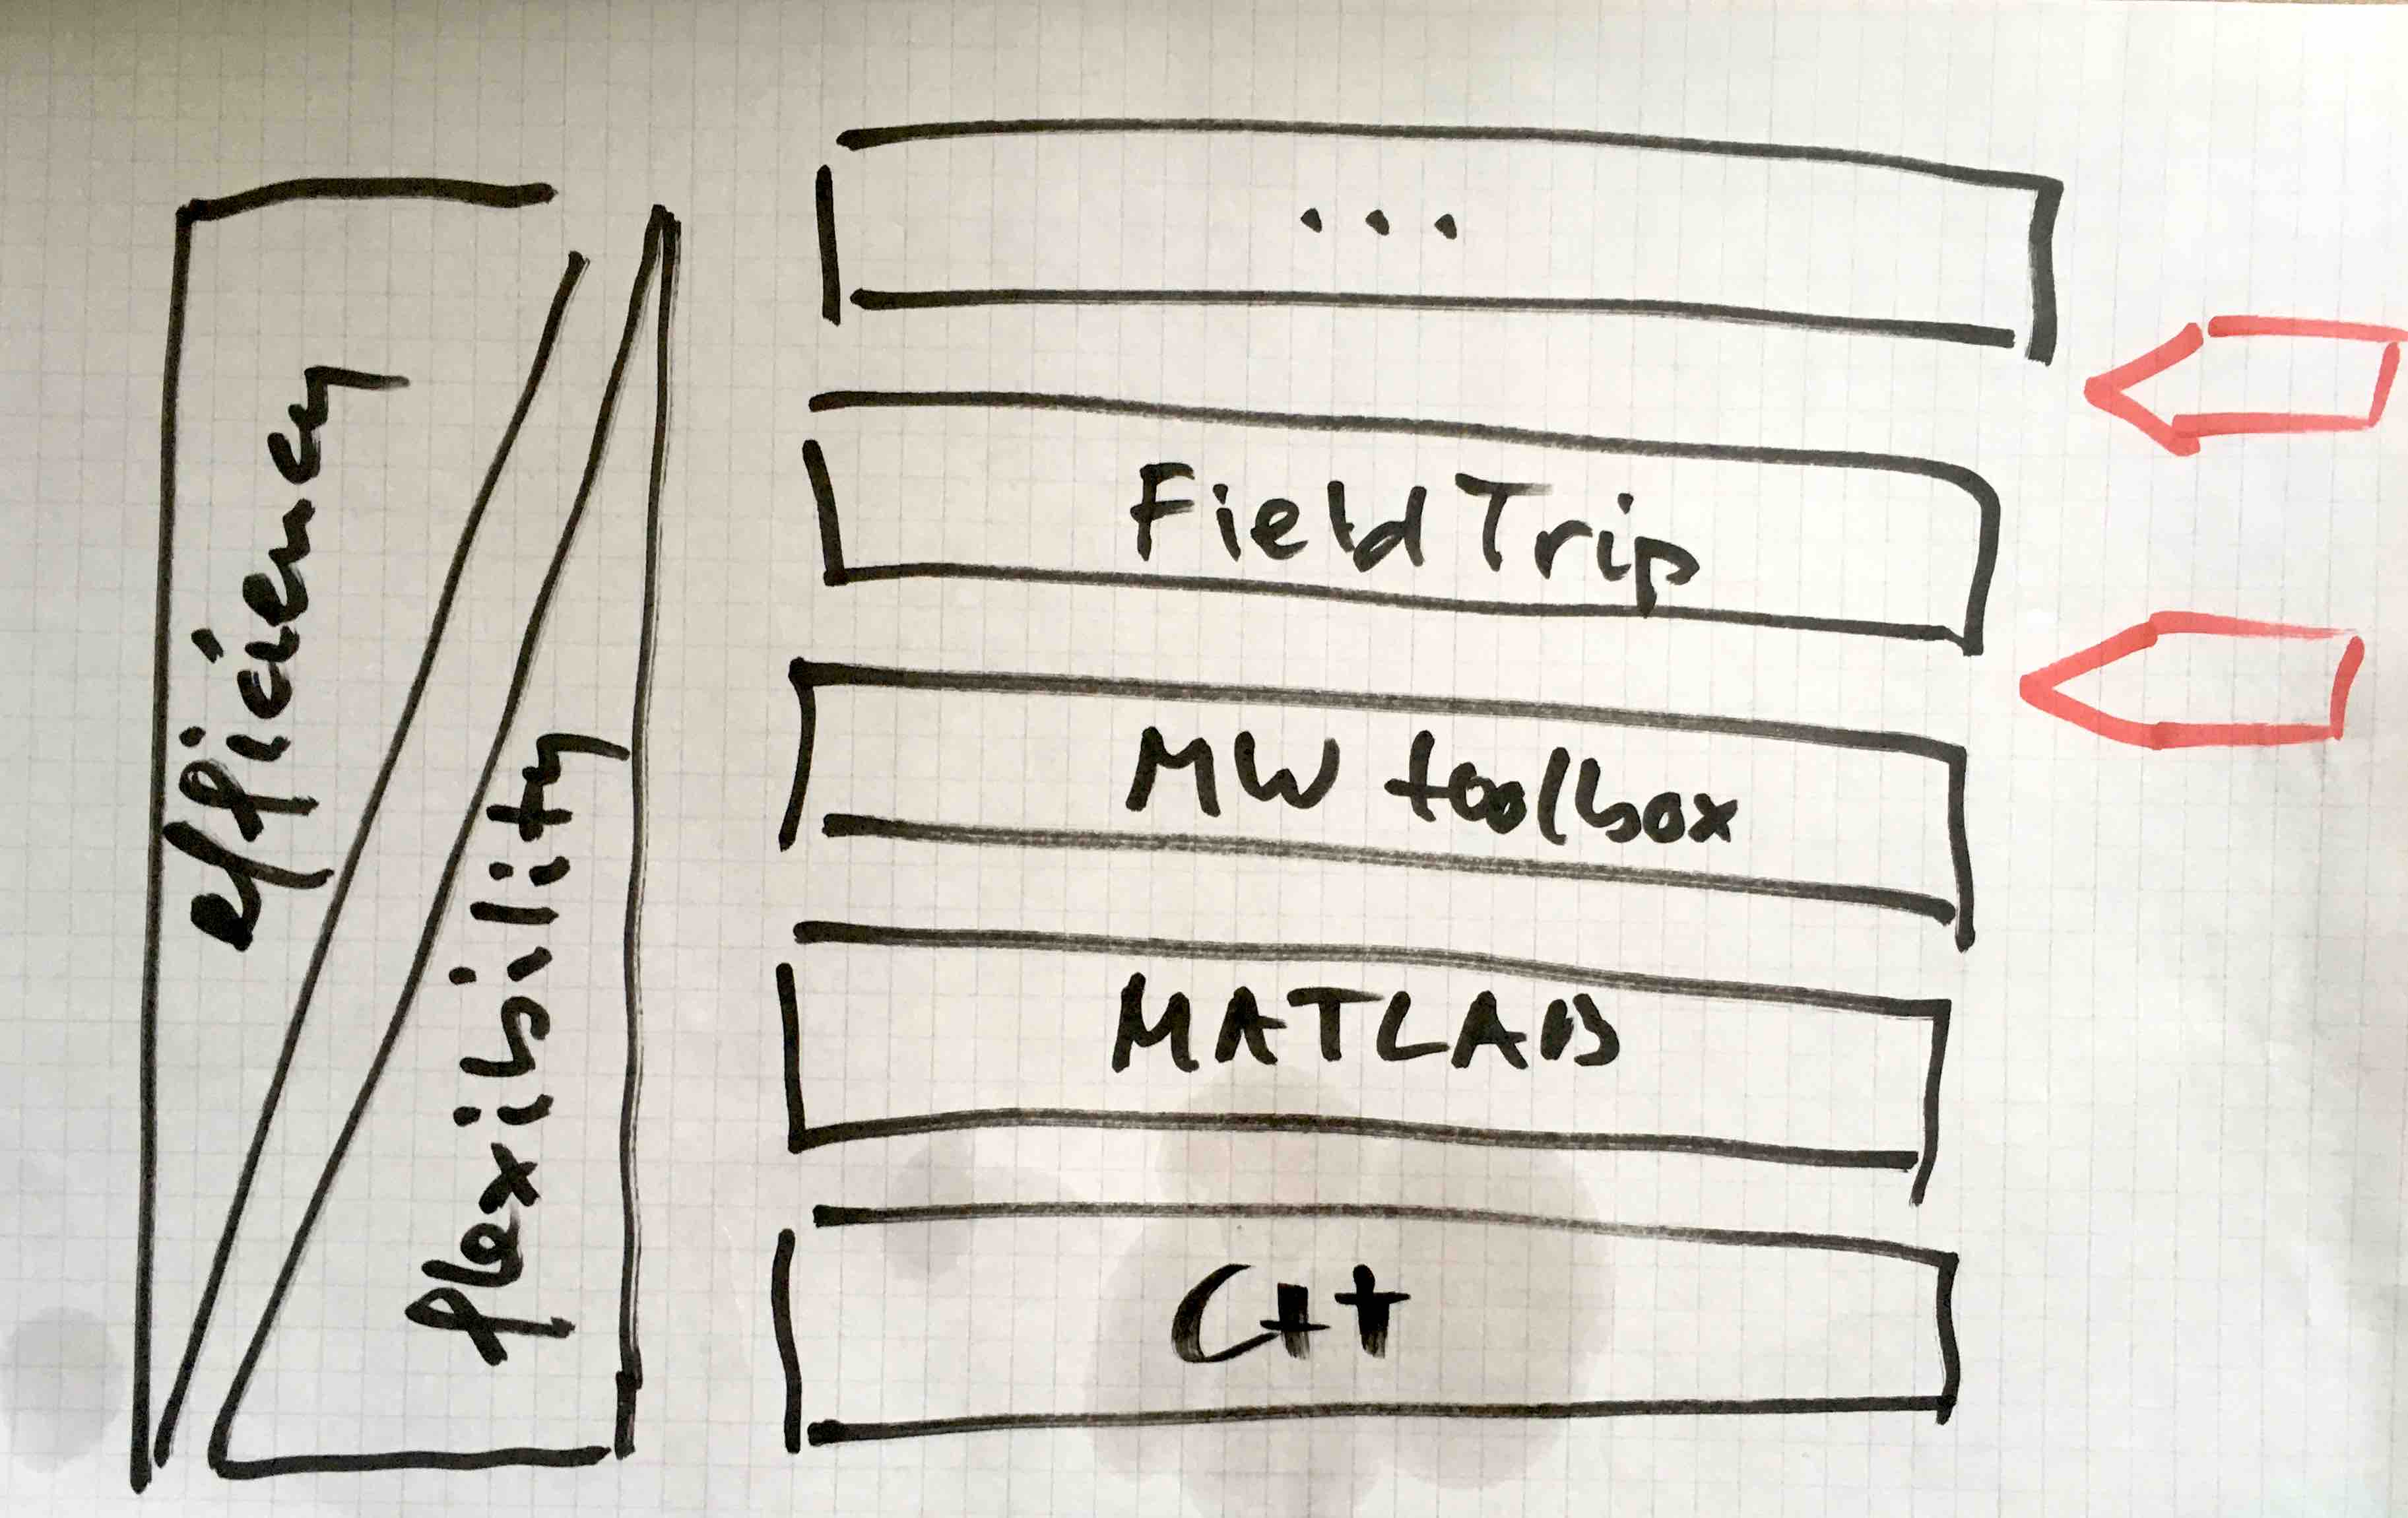 efficiency
flexibility
...
FieldTrip
MW toolbox
MATLAB
C++